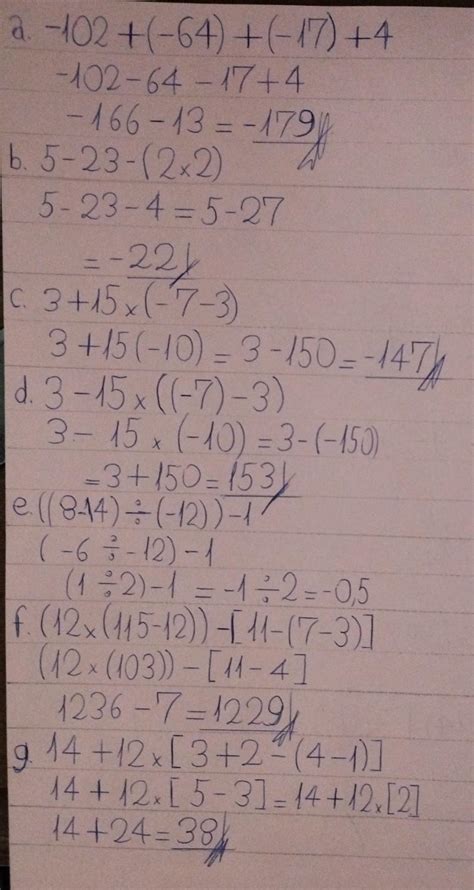 a. -102 + (-64) + (-17) + 4
-102 - 64 - 17 + 4
-166 - 13 = -179
b. 5 - 23 - (2 × 2)
5 - 23 - 4 = 5 - 27
= -22
c. 3 + 15 × (-7 - 3)
3 + 15 (-10) = 3 - 150 = -147
d. 3 - 15 × ((-7) - 3)
3 - 15 × (-10) = 3 - (-150)
= 3 + 150 = 153
e. ((8-14) ÷ (-12)) - 1
(-6 ÷ -12) - 1
(1 ÷ 2) - 1 = -1 ÷ 2 = -0,5
f. (12 × (115 - 12)) - [11 - (7 - 3)]
(12 × (103)) - [11 - 4]
1236 - 7 = 1229
g. 14 + 12 × [3 + 2 - (4 - 1)]
14 + 12 × [5 - 3] = 14 + 12 × [2]
14 + 24 = 38